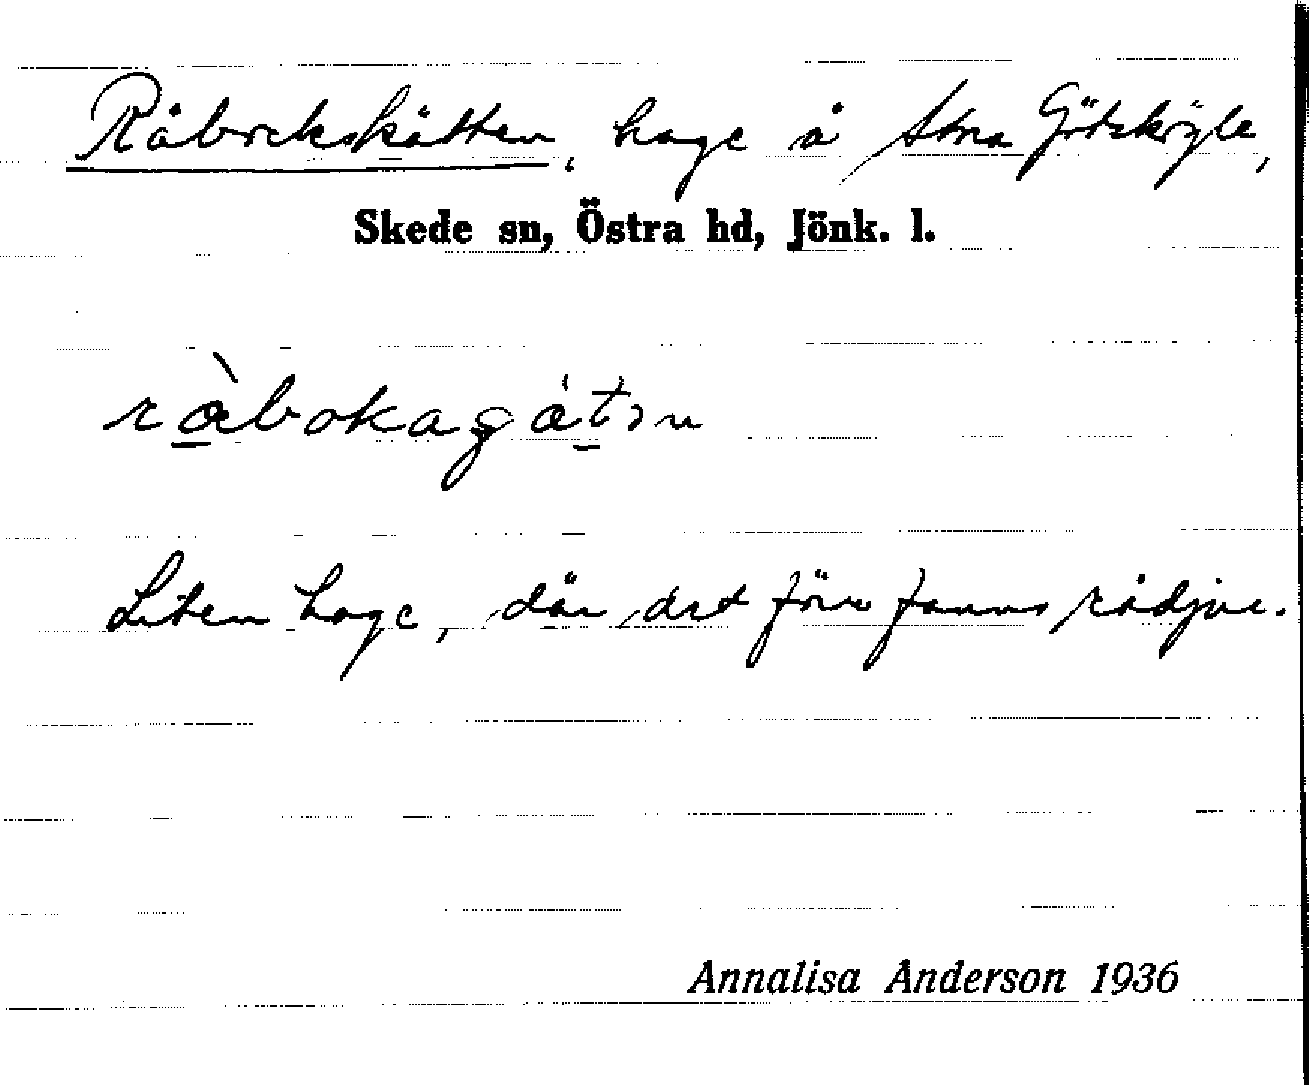 Råbockskätten, hage å Stora Götskögle,
Skede sn, Östra hd, Jönk. l.
Liten hage, där det förr fanns rådjur.
Annalisa Anderson 1936